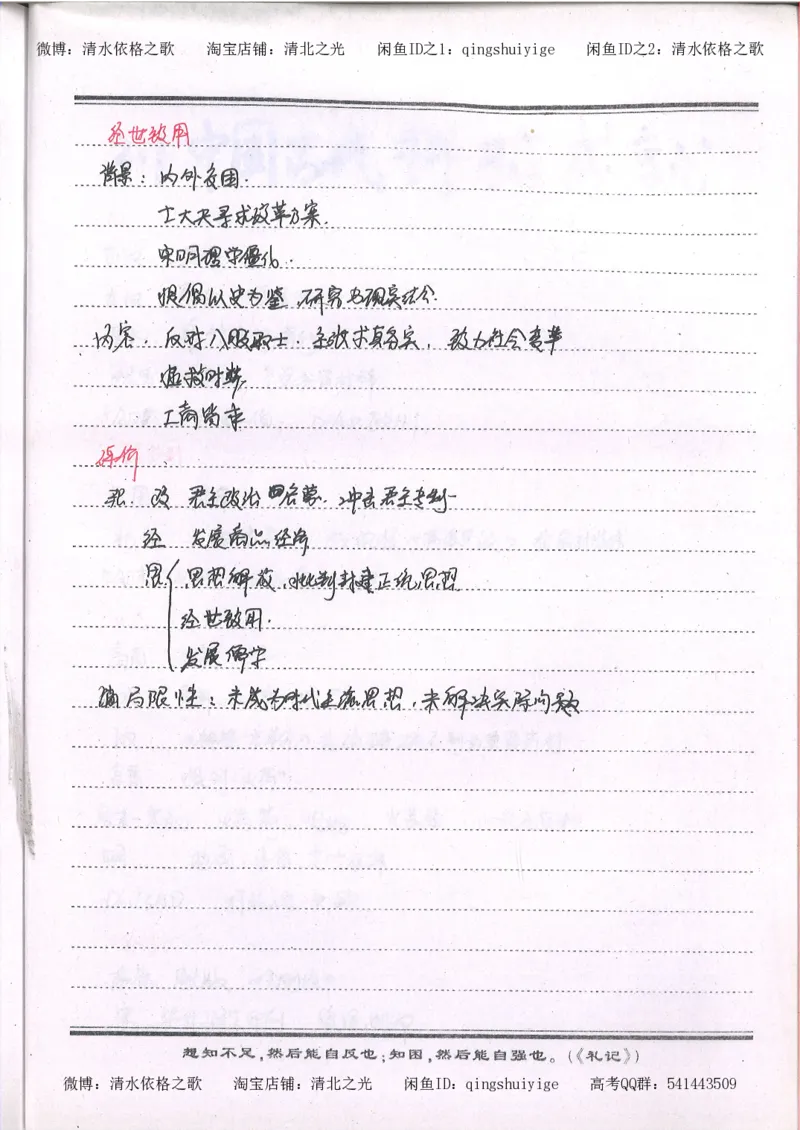 微博：清水依格之歌 淘宝店铺：清北之光 闲鱼ID之1：qingshuiyige 闲鱼ID之2：清水依格之歌
经世致用
背景：内外交困.
士大夫寻求改革方案.
宋明理学僵化.
提倡以史为鉴，研究与现实结合.
内容. 反对八股取士. 主张求真务实, 致力社会变革
追救时弊,
工商皆本
评价
积. 政 君主政治 启蒙. 冲击君主专制
经 发展商品经济
思 思想解放, 批判封建正统思想
经世致用.
发展儒学
局限性：未成为时代主流思想, 未解决实际问题
想知不足,然后能自反也;知困,然后能自强也。(《礼记》)
微博：清水依格之歌 淘宝店铺：清北之光 闲鱼ID：qingshuiyige 高考QQ群：541443509